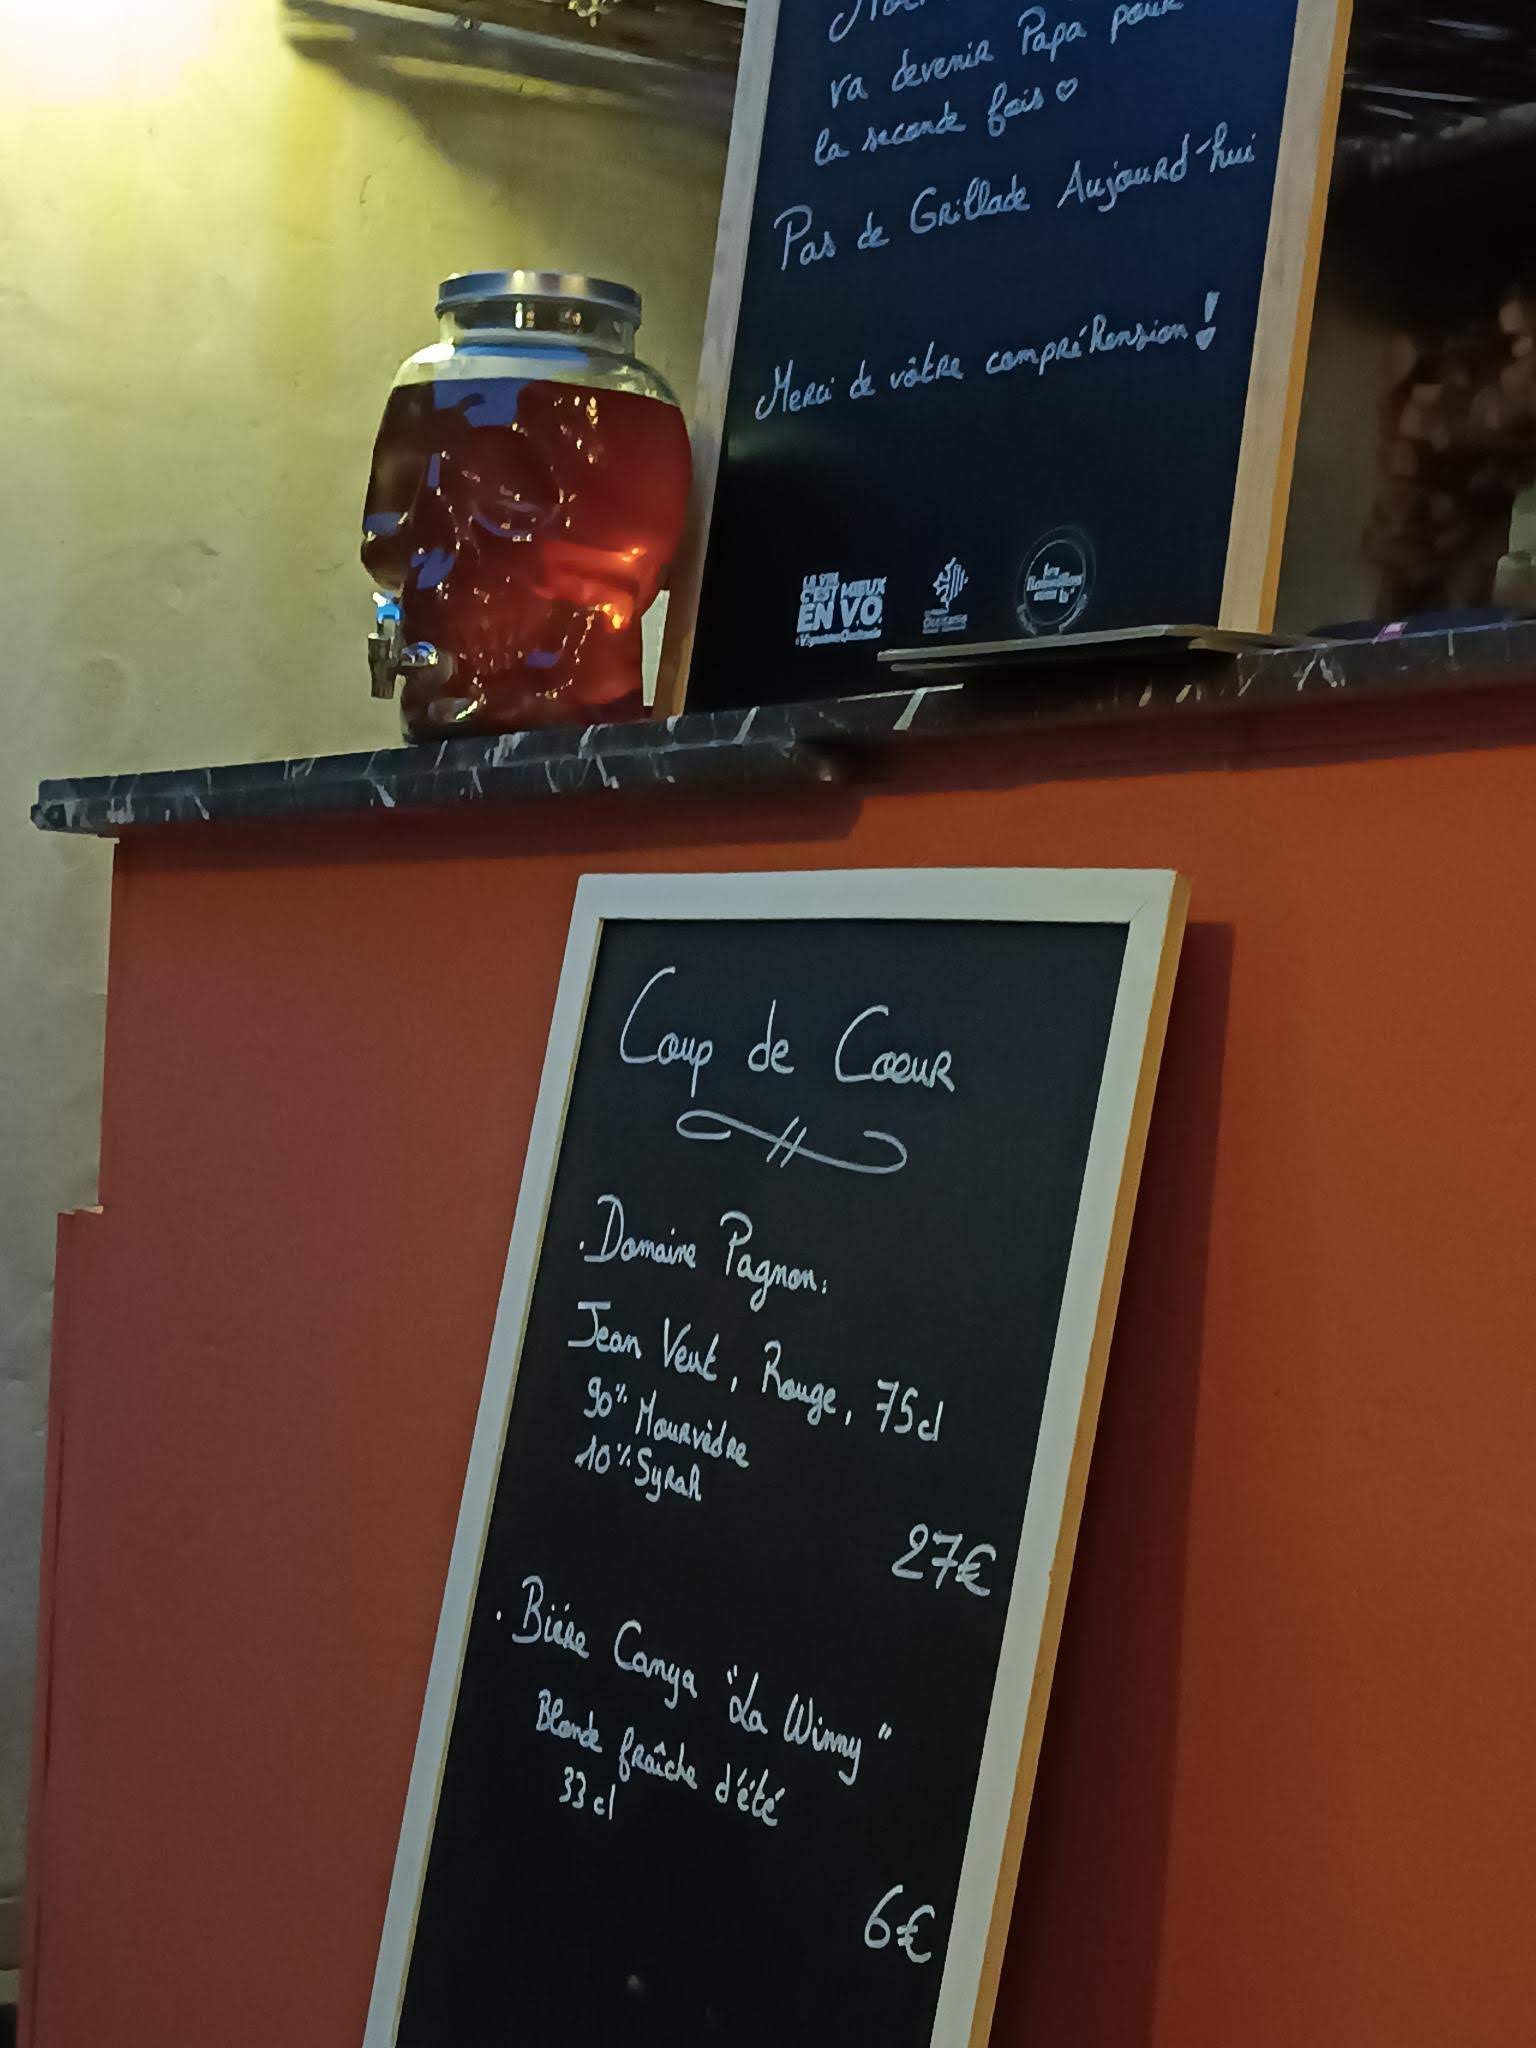 va devenir Papa pour
la seconde fois ♡
Pas de Grillade Aujourd'hui
Merci de vôtre compréhension !
LA VIE
C'EST MIEUX
EN V.O.
Occitanie
Les
Roussillon
Coup de Coeur
. Domaine Pagnon:
Jean Veut, Rouge, 75cl
90% Mourvèdre
10% Syrah
27€
. Bière Canya "La Winny"
Blonde fraîche d'été
33cl
6€